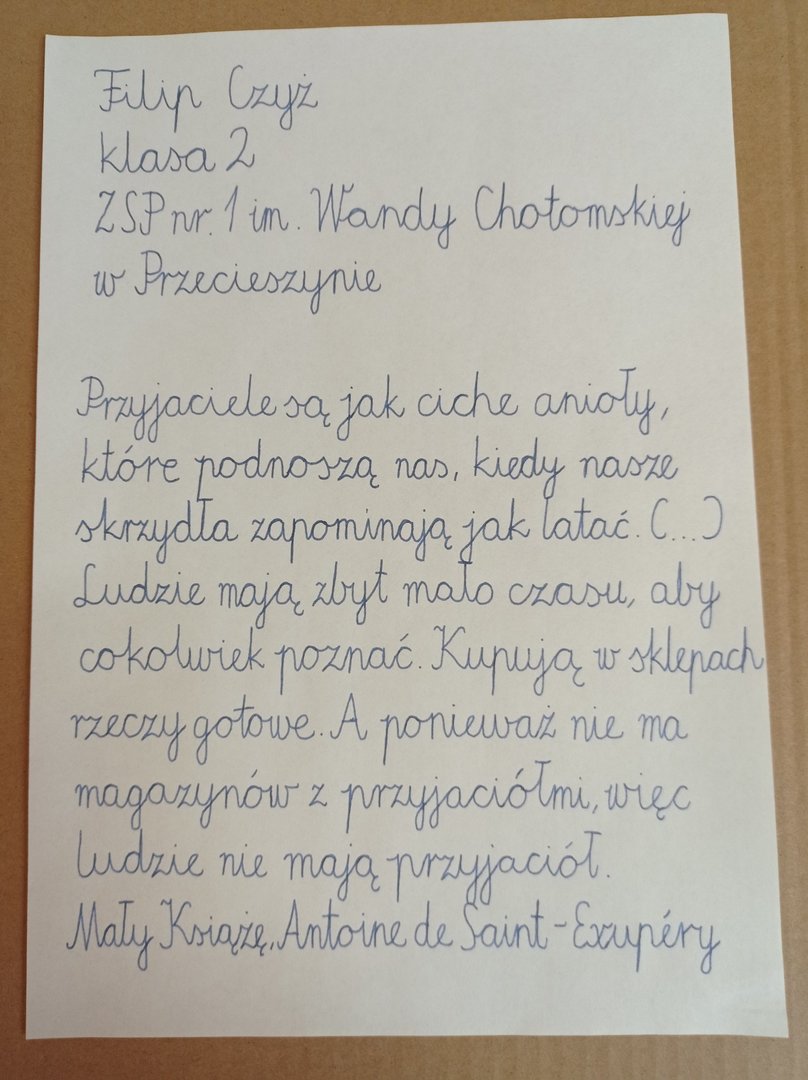 Filip Czyż
klasa 2
ZSP nr. 1 im. Wandy Chotomskiej
w Przecieszynie
Przyjaciele są jak ciche anioły,
które podnoszą nas, kiedy nasze
skrzydła zapominają jak latać. (...)
Ludzie mają zbyt mało czasu, aby
cokolwiek poznać. Kupują w sklepach
rzeczy gotowe. A ponieważ nie ma
magazynów z przyjaciółmi, więc
ludzie nie mają przyjaciół.
Mały Książę, Antoine de Saint-Exupéry